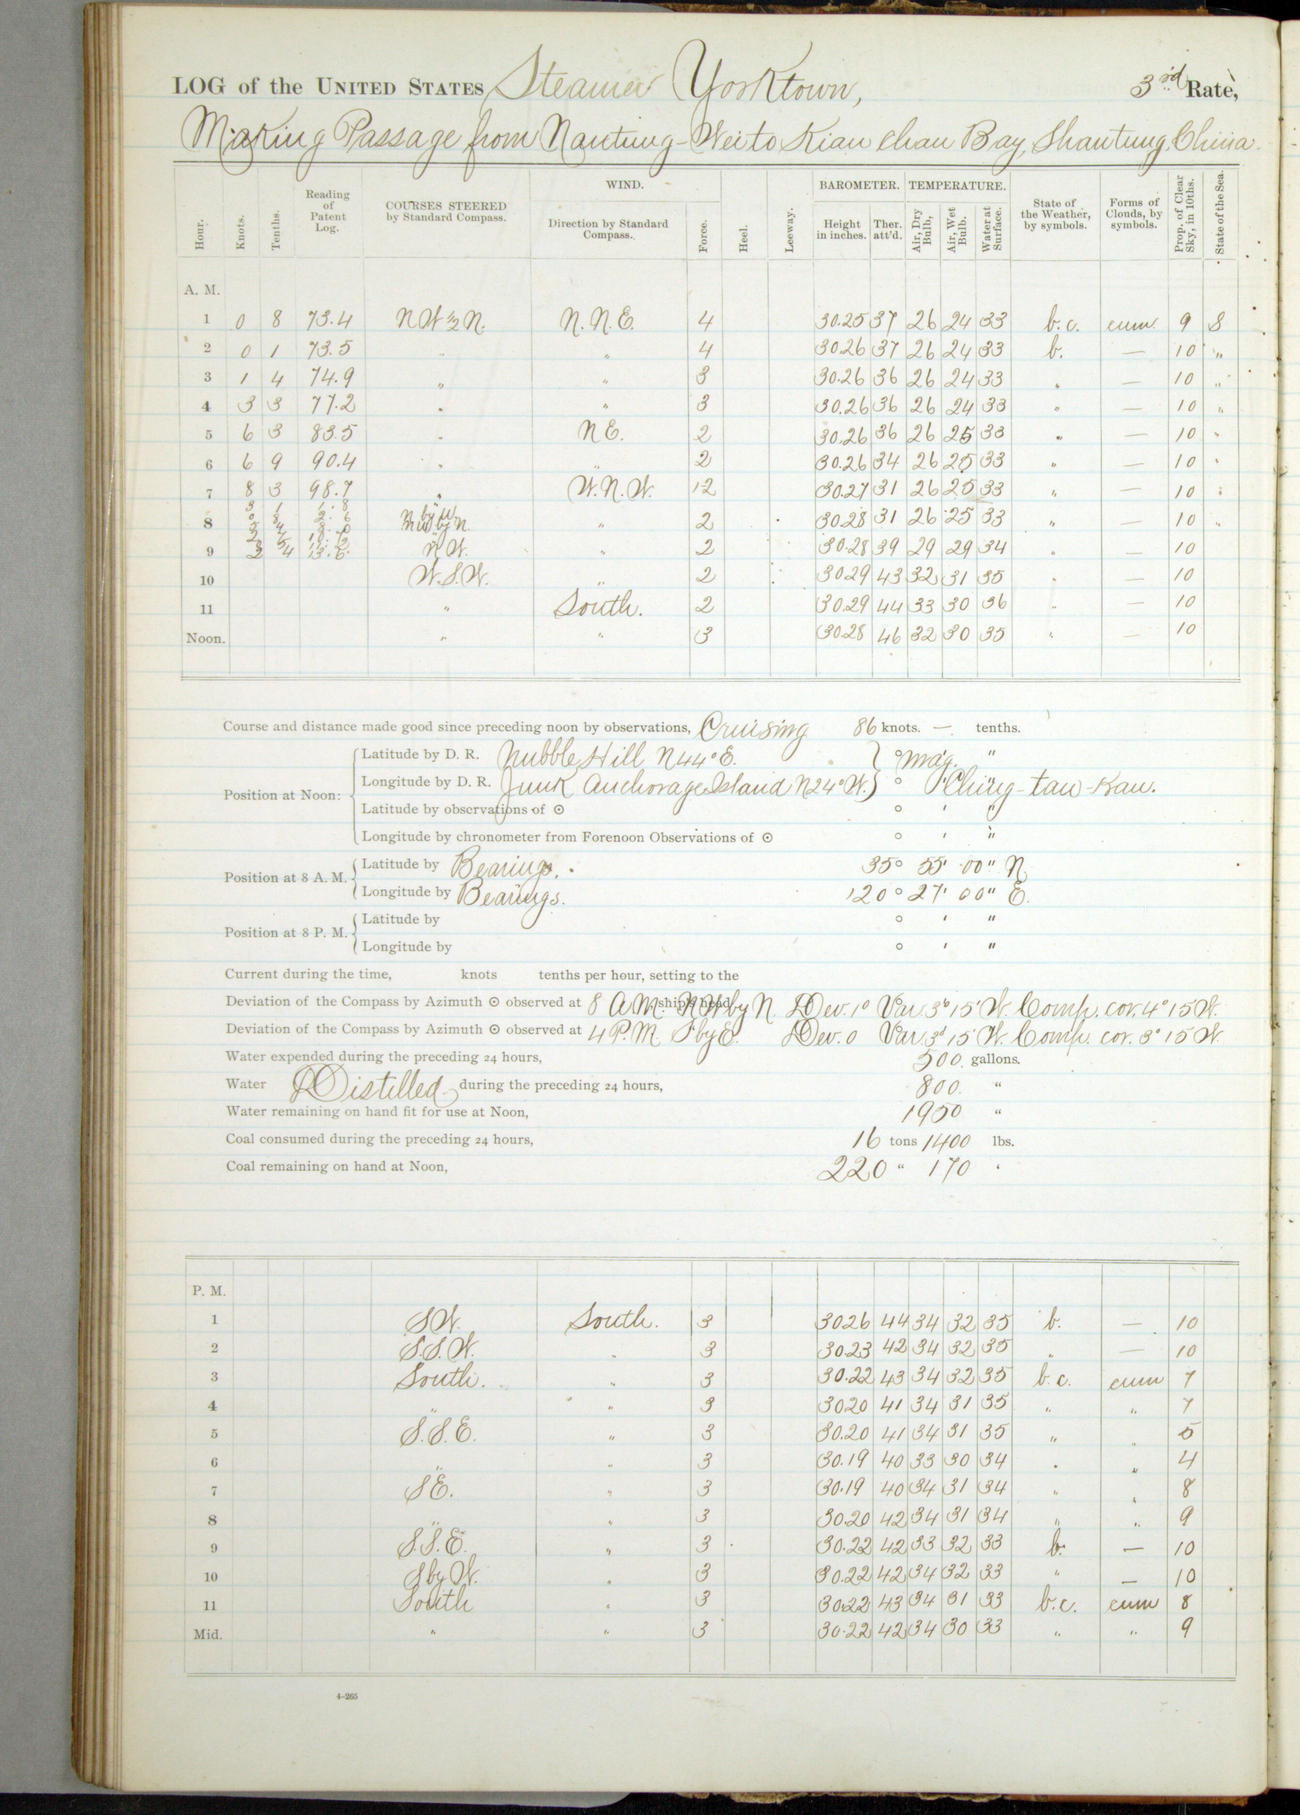 LOG of the UNITED STATES Steamer Yorktown, 3rd Rate,
Making Passage from Nantung-Wei to Kiau Chau Bay, Shantung, China.
Hour. Knots. Tenths. Reading of Patent Log. COURSES STEERED by Standard Compass. WIND. Direction by Standard Compass. Force. Heel. Leeway. BAROMETER. Height in inches. Ther. att'd. TEMPERATURE. Air, Dry Bulb, Air, Wet Bulb. Water at Surface. State of the Weather, by symbols. Forms of Clouds, by symbols. Prop. of Clear Sky, in 10ths. State of the Sea.
A. M.
1 0 8 73.4 NW ½ N. N.N.E. 4 30.25 37 26 24 33 b.c. cum 9 S
2 0 1 73.5 " " 4 30.26 37 26 24 33 b. — 10 "
3 1 4 74.9 " " 3 30.26 36 26 24 33 " — 10 "
4 3 3 77.2 " " 3 30.26 36 26 24 33 " — 10 "
5 6 3 83.5 " NE. 2 30.26 36 26 25 33 " — 10 "
6 6 9 90.4 " " 2 30.26 34 26 25 33 " — 10 "
7 8 3 98.7 " W.N.W. 1-2 30.27 31 26 25 33 " — 10 "
8 N by W NW by N " 2 30.28 31 26 25 33 " — 10 "
9 3 4 13.6 NW. " 2 30.28 39 29 29 34 " — 10
10 W.S.W. " 2 30.29 43 32 31 35 " — 10
11 " South. 2 30.29 44 33 30 36 " — 10
Noon. " " 3 30.28 46 32 30 35 " — 10
Course and distance made good since preceding noon by observations, Cruising 86 knots. — tenths.
Position at Noon:
Latitude by D. R. Nubble Hill N44°E. ° mag. "
Longitude by D. R. Junk Anchorage Island N24°W. ° ' " Ching-tau-Kau.
Latitude by observations of ⊙ ° ' "
Longitude by chronometer from Forenoon Observations of ⊙ ° ' "
Position at 8 A. M. Latitude by Bearings. 35° 55' 00" N
Longitude by Bearings. 120° 27' 00" E.
Position at 8 P. M. Latitude by ° ' "
Longitude by ° ' "
Current during the time, knots tenths per hour, setting to the
Deviation of the Compass by Azimuth ⊙ observed at 8 A.M. ship's head NW by N. Dev. 1° Var. 3° 15' W. Comp. cor. 4° 15 W.
Deviation of the Compass by Azimuth ⊙ observed at 4 P.M. S by E. Dev. 0 Var. 3° 15' W. Comp. cor. 3° 15 W.
Water expended during the preceding 24 hours, 500 gallons.
Water Distilled during the preceding 24 hours, 800. "
Water remaining on hand fit for use at Noon, 1950 "
Coal consumed during the preceding 24 hours, 16 tons 1400 lbs.
Coal remaining on hand at Noon, 220 " 170 "
P. M.
1 SW. South. 3 30.26 44 34 32 35 b. — 10
2 S.S.W. " 3 30.23 42 34 32 35 " — 10
3 South. " 3 30.22 43 34 32 35 b.c. cum 7
4 " " 3 30.20 41 34 31 35 " " 7
5 S.S.E. " 3 30.20 41 34 31 35 " " 5
6 " " 3 30.19 40 33 30 34 " " 4
7 SE. " 3 30.19 40 34 31 34 " " 8
8 " " 3 30.20 42 34 31 34 " " 9
9 S.S.E. " 3 30.22 42 33 32 33 b. — 10
10 S by W. " 3 30.22 42 34 32 33 " — 10
11 South " 3 30.22 43 34 31 33 b.c. cum 8
Mid. " " 3 30.22 42 34 30 33 " " 9
4-265